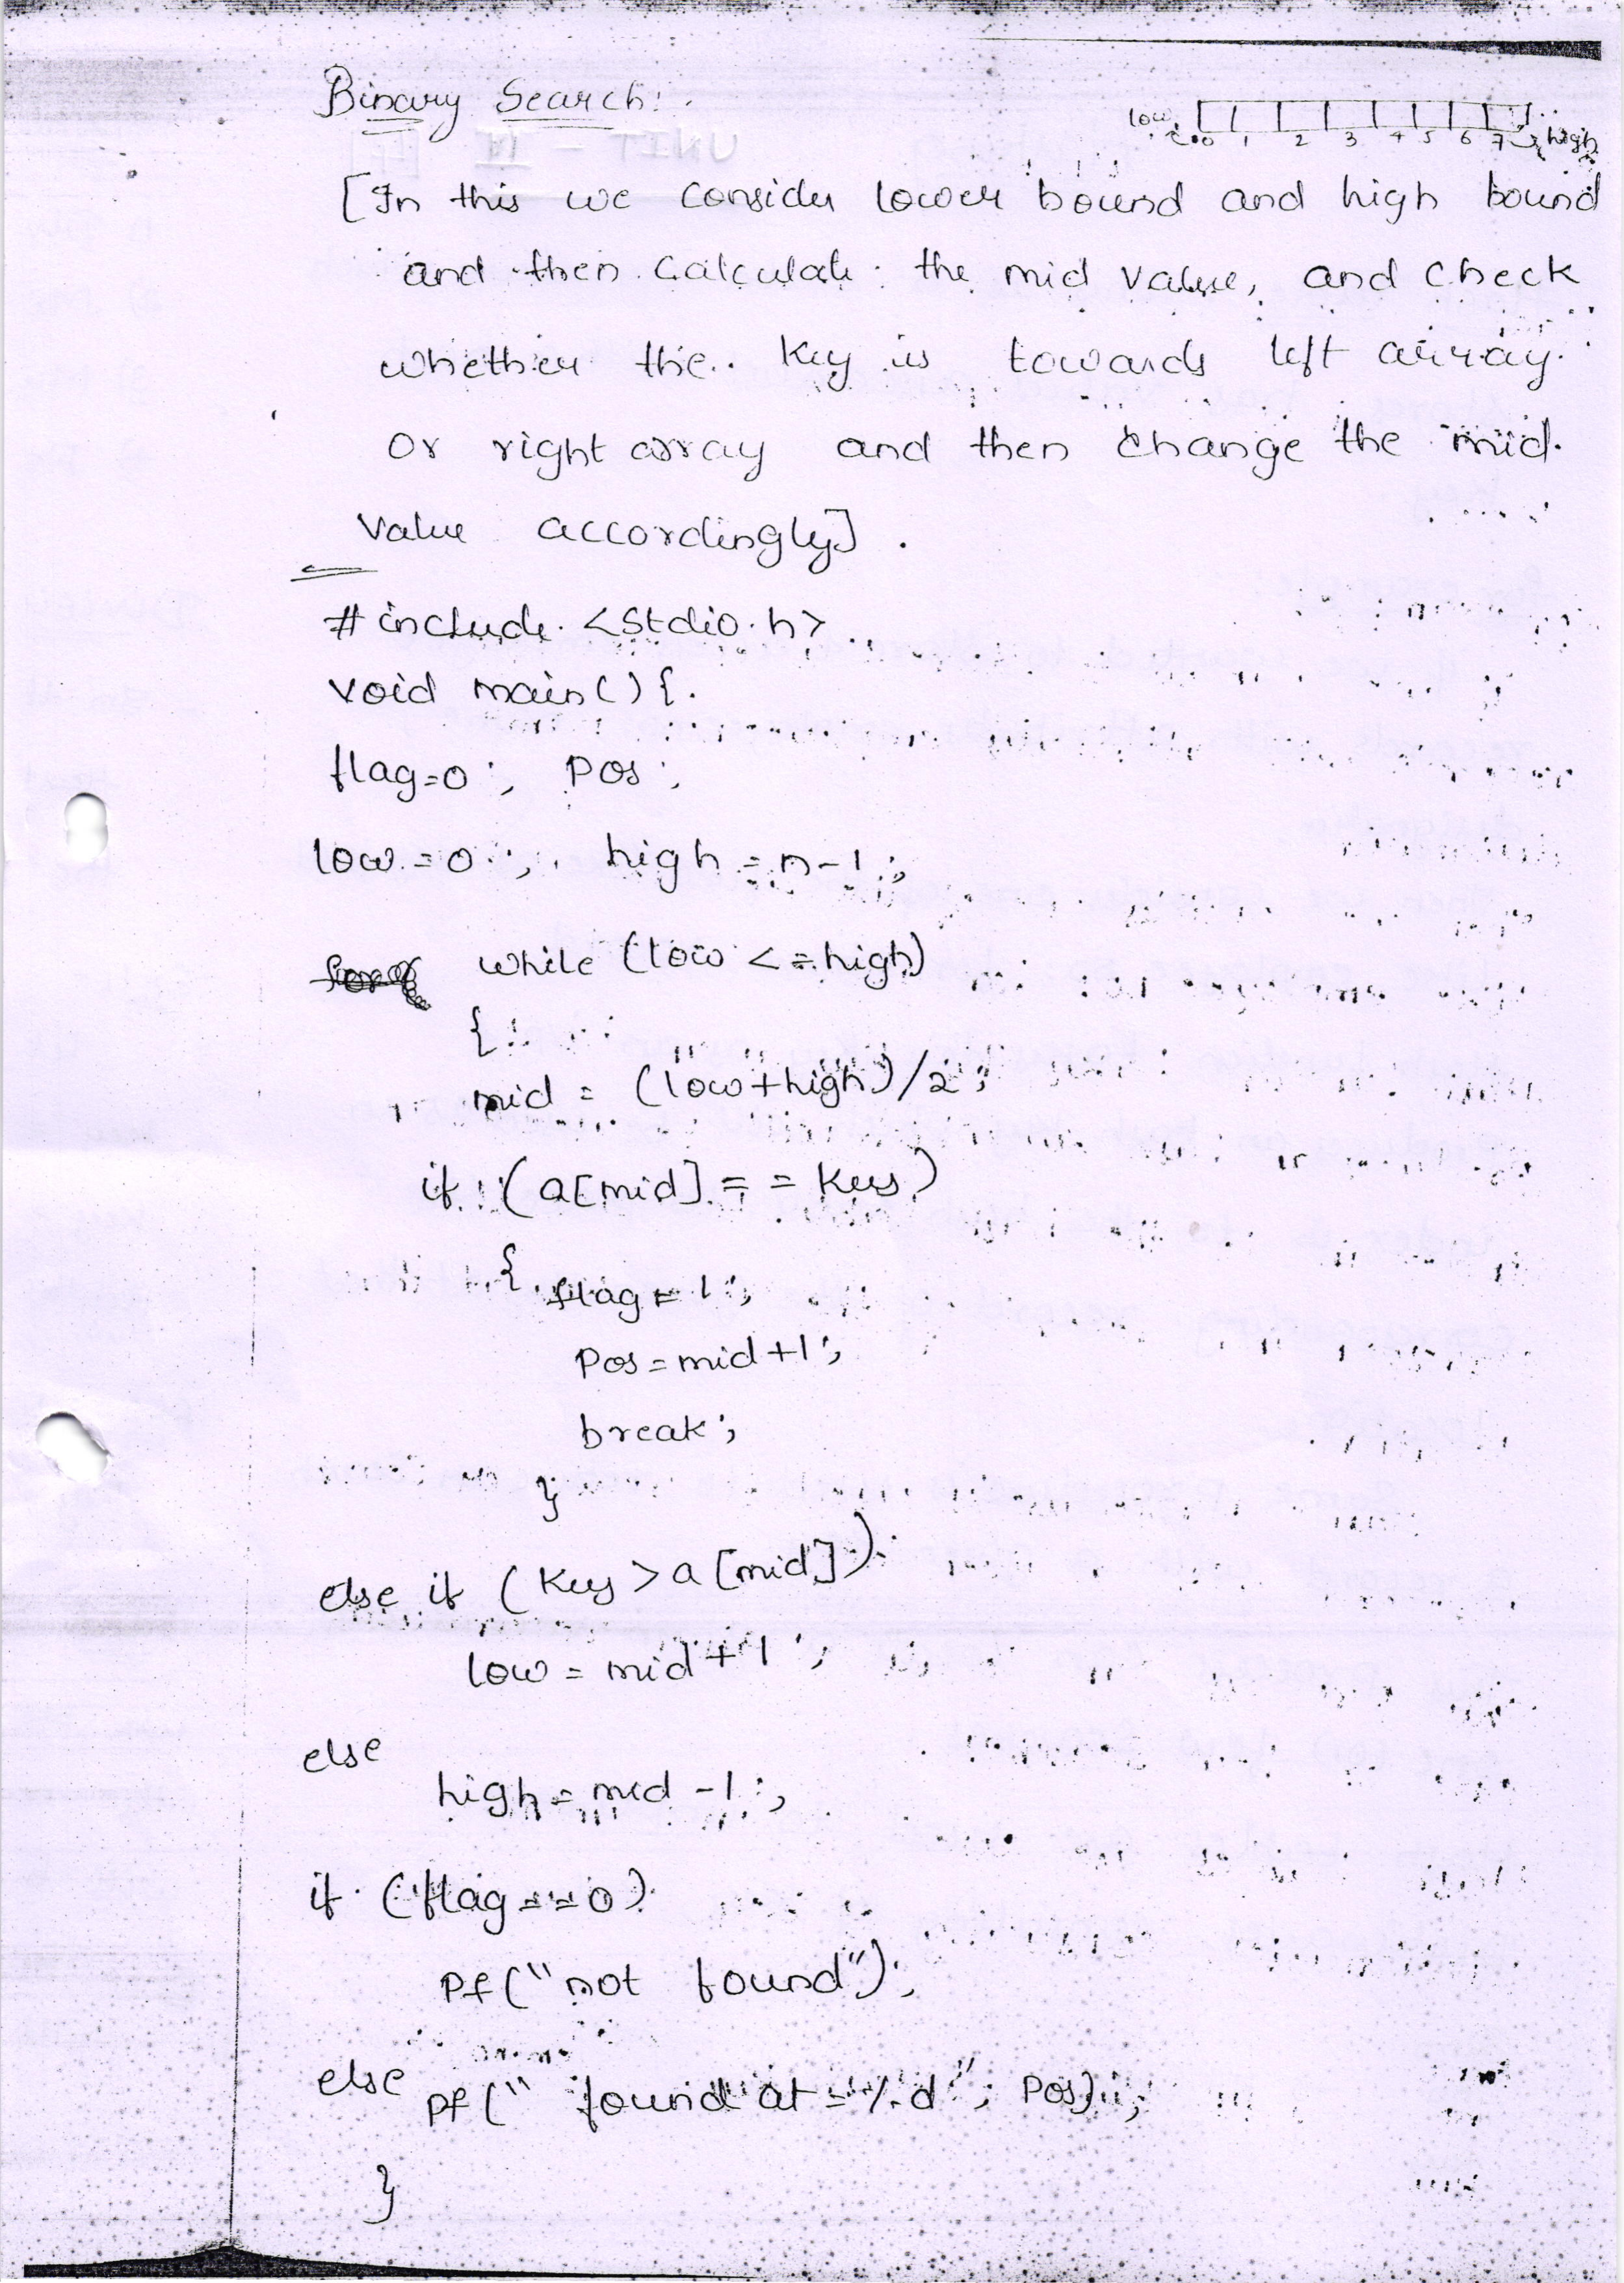 Binary Search:
low
high
0 1 2 3 4 5 6 7
[In this we consider lower bound and high bound
and then calculate the mid value, and check
whether the key is towards left array
or right array and then change the mid
value accordingly].
#include <stdio.h>
void main() {
flag=0; pos;
low=0; high=n-1;
while (low <= high)
{
mid = (low+high)/2;
if (a[mid] == key)
{ flag=1;
pos=mid+1;
break;
}
else if (key > a[mid])
low = mid+1;
else
high = mid-1;
if (flag==0)
pf("not found");
else pf(" found at = %d", pos);
}